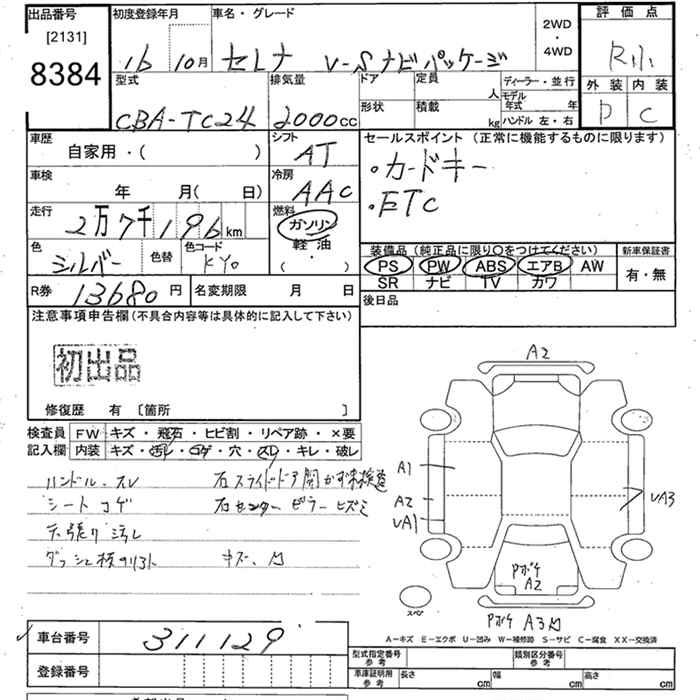 出品番号 初度登録年月 車名・グレード 2WD・4WD 評価点
[2131]
8384 16 10月 セレナ V-Sナビパッケージ R小
型式 排気量 ドア 定員 人 ディーラー・並行 外装 内装
形状 積載 kg モデル年式 年 ハンドル 左・右
CBA-TC24 2000cc D C
車歴 シフト セールスポイント(正常に機能するものに限ります)
自家用・( ) AT ・カードキー
車検 冷房 ・ETC
年 月( 日) AAC
走行 燃料
2万7千196km ガソリン
軽油
・
( )
色 色替 色コード 装備品(純正品に限り○をつけてください) 新車保証書
シルバー KY0 PS PW ABS エアB AW 有・無
SR ナビ TV カワ
R券 13680円 名変期限 月 日 後日品
注意事項申告欄(不具合内容等は具体的に記入して下さい)
初出品
修復歴 有 [箇所 ]
検査員 FW キズ・飛石・ヒビ割・リペア跡・×要
記入欄 内装 キズ・汚レ・コゲ・穴・スレ・キレ・破レ
ハンドル スレ 右スライドドア開かず未検査
シートコゲ 右センターピラーヒズミ
天張り汚レ
キズ、凹
A2
A1
A2
UA1
UA3
Pボケ
A2
スペア
Pボケ A3凹
A-キズ E-エクボ U-凹み W-補修跡 S-サビ C-腐食 XX-交換済
車台番号 311129
登録番号
型式指定番号 参考 類別区分番号 参考
車庫証明用 参考 長さ cm 幅 cm 高さ cm